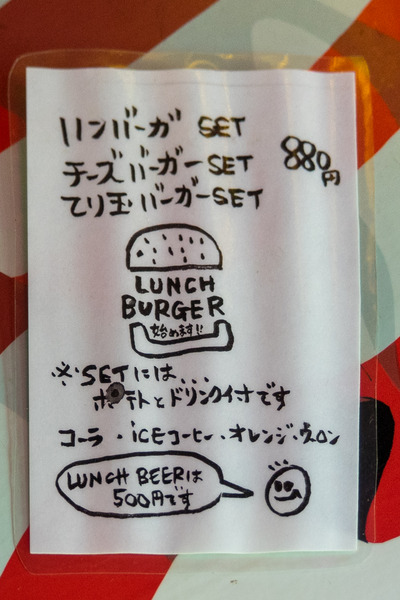 リンバーガ SET
チーズバーガーSET
てり玉バーガーSET
880円
LUNCH
BURGER
始めます!!
※SETには...
ポテトとドリンク付です
コーラ・iCEコーヒー・オレンジ・ウーロン
LUNCH BEERは
500円です